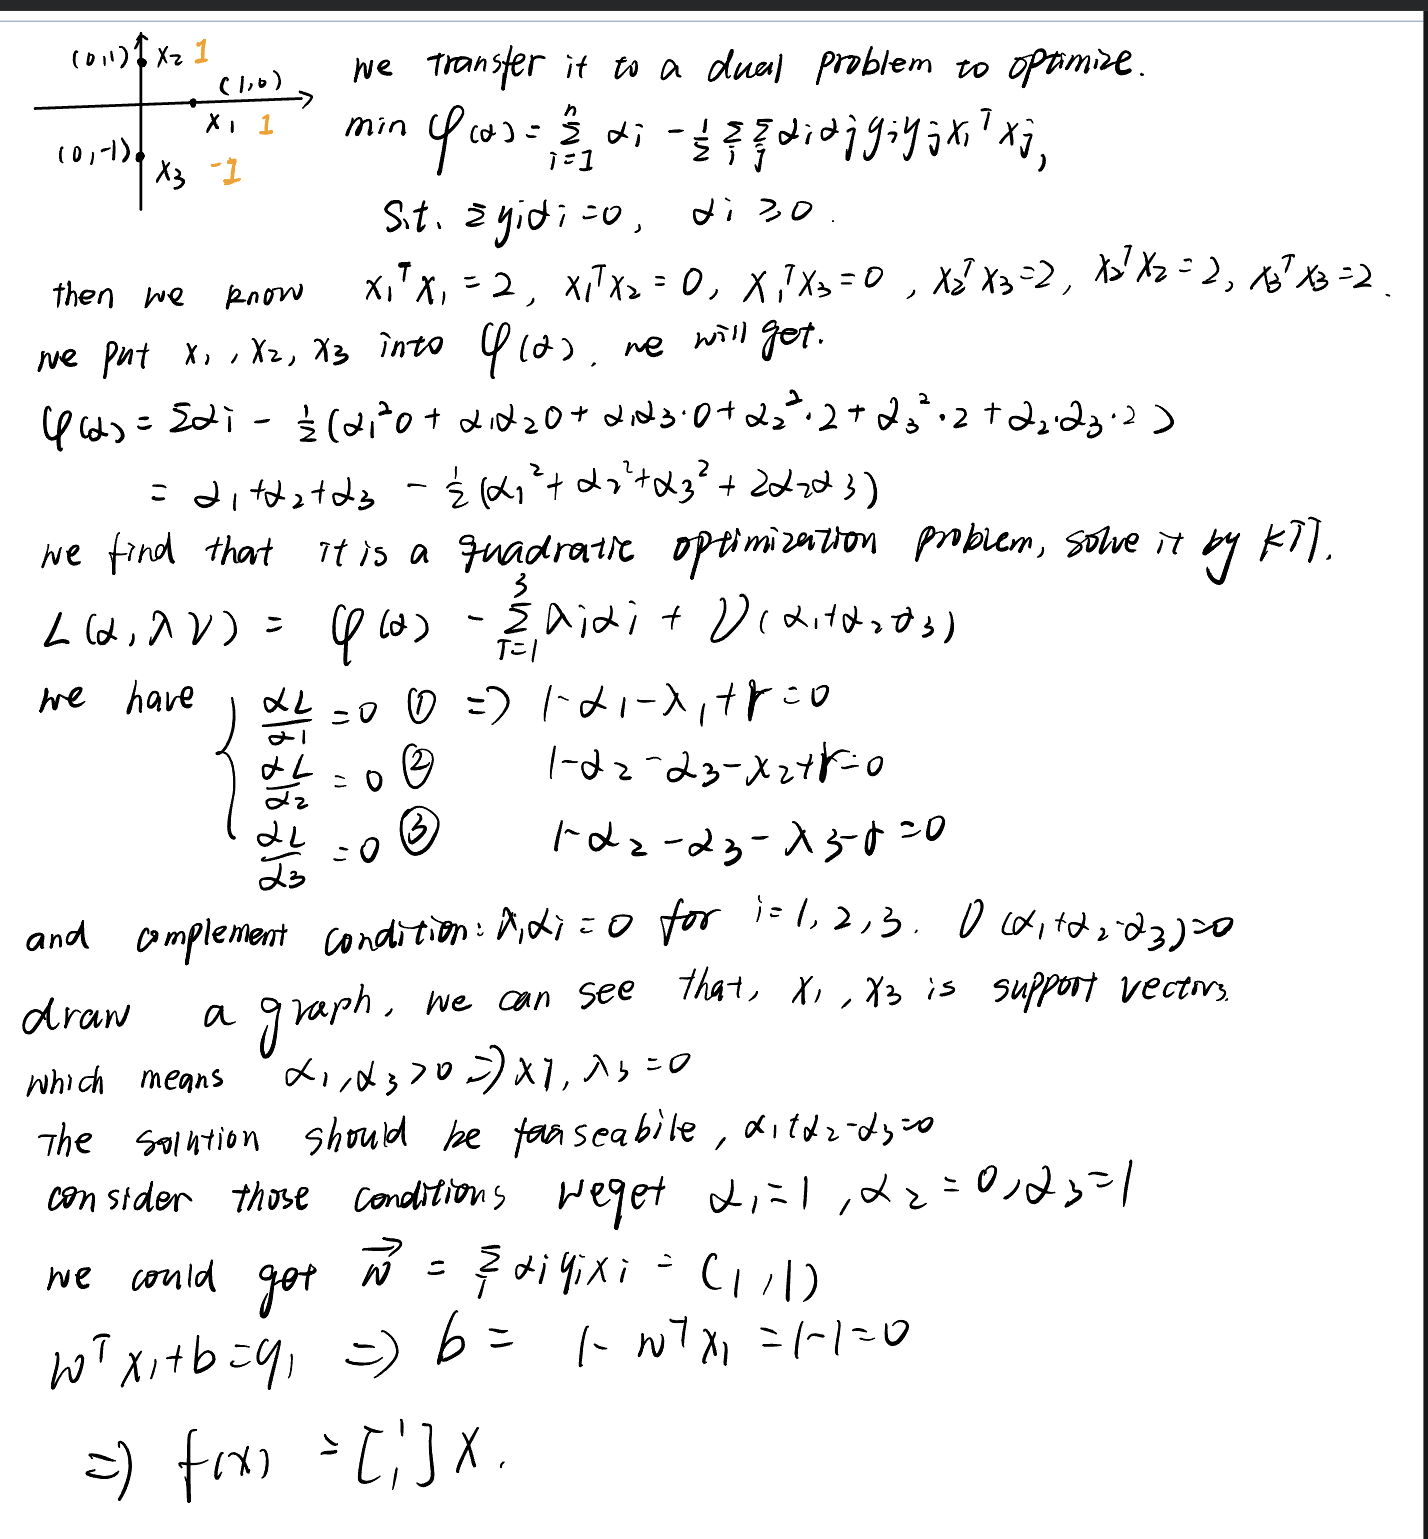 (0,1) x₂ 1
(1,0)
x₁ 1
(0,-1)
x₃ -1
we transfer it to a dual problem to optimize.
min φ(α) = Σ_{i=1}^{n} αi - ½ Σ_i Σ_j αiαjyiyjxi^T xj,
S.t. Σyiαi=0, αi ≥0.
then we know x₁^T x₁ = 2, x₁^T x₂ = 0, x₁^T x₃ = 0, x₂^T x₃ = 2, x₂^T x₂ = 2, x₃^T x₃ = 2.
we put x₁, x₂, x₃ into φ(α). we will get.
φ(α) = Σαi - ½(α₁²0 + α₁α₂0 + α₁α₃·0 + α₂²·2 + α₃²·2 + α₂·α₃·2)
= α₁+α₂+α₃ - ½(α₁²+α₂²+α₃²+2α₂α₃)
we find that it is a quadratic optimization problem, solve it by KTT.
L(α,λν) = φ(α) - Σ_{i=1}^{3} λiαi + ν(α₁+α₂-α₃)
we have αL/α1 = 0 ① => 1-α₁-λ₁+r=0
αL/α2 = 0 ② 1-α₂-α₃-λ₂+r=0
αL/α3 = 0 ③ 1-α₂-α₃-λ₃-r=0
and complement condition: λiαi = 0 for i=1,2,3. ν(α₁+α₂-α₃)=0
draw a graph, we can see that, x₁, x₃ is support vectors.
which means α₁,α₃>0 => λ1, λ₃=0
The solution should be , α₁+α₂-α₃=0
consider those conditions weget α₁=1, α₂=0, α₃=1
we could get w⃗ = Σ_i αiyixi = (1,1)
w^T x₁+b=y₁ => b = 1-w^T x₁ = 1-1=0
=> f(x) = [1 1] x.